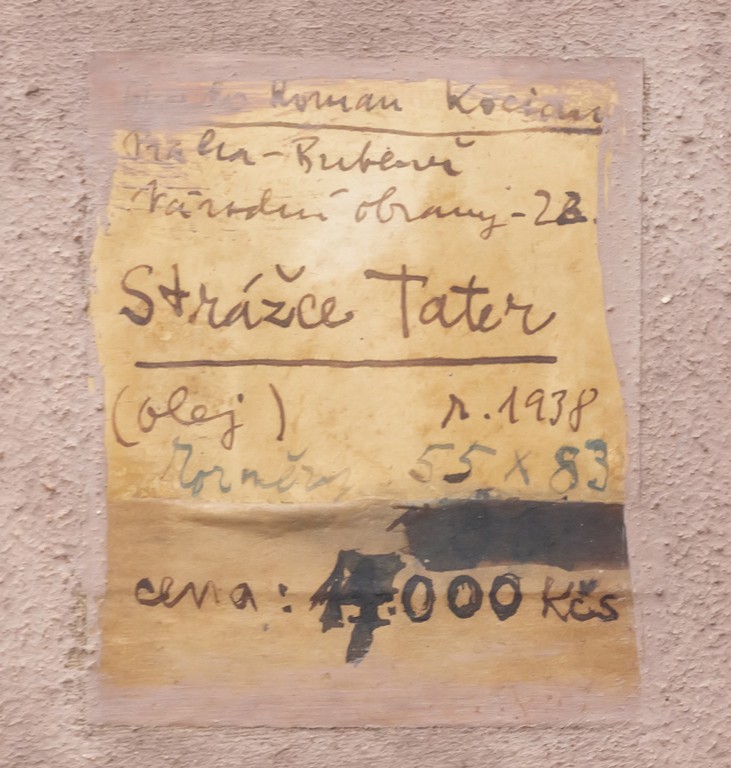 Roman Kocian
Praha-Bubeneč
Národní obrany-22.
Strážce Tater
(olej) r. 1938
Rozměry 55 x 83
cena: 000 Kčs